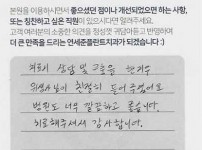 본원을 이용하시면서 좋으셨던 점이나 개선되었으면 하는 사항,
또는 칭찬하고 싶은 직원이 있으시다면 알려주세요.
고객 여러분의 소중한 의견을 정성껏 귀담아듣고 반영하여
더 큰 만족을 드리는 연세준플란트치과가 되겠습니다 :)
치료 상담 및 고충을 한가득
친절히 들어 주셨어요
병원도 너무 깔끔하고 좋습니다.
치료해주셔서 감사합니다.